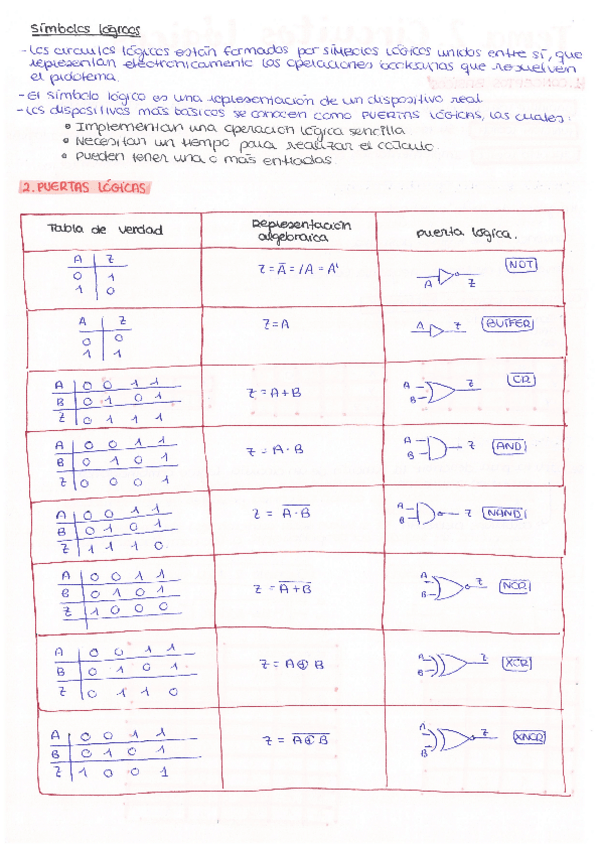 Símbolos lógicos
- Los circuitos lógicos están formados por SÍMBOLOS LÓGICOS unidos entre sí, que
representan electrónicamente las operaciones booleanas que resuelven
el problema.
- El símbolo lógico es una representación de un dispositivo real
- Los dispositivos más básicos se conocen como PUERTAS LÓGICAS, las cuales:
• Implementan una operación lógica sencilla
• Necesitan un tiempo para realizar el cálculo
• Pueden tener una o más entradas
2. PUERTAS LÓGICAS
Tabla de verdad Representación algebraica puerta lógica.
A Z
0 1
1 0
Z = A̅ = /A = A'
A Z NOT
A Z
0 0
1 1
Z = A
A Z BUFFER
A 0 0 1 1
B 0 1 0 1
Z 0 1 1 1
Z = A + B
A B Z OR
A 0 0 1 1
B 0 1 0 1
Z 0 0 0 1
Z = A · B
A B Z AND
A 0 0 1 1
B 0 1 0 1
Z 1 1 1 0
Z = A̅ ̅·̅ ̅B̅
A B Z NAND
A 0 0 1 1
B 0 1 0 1
Z 1 0 0 0
Z = A̅ ̅+̅ ̅B̅
A B Z NOR
A 0 0 1 1
B 0 1 0 1
Z 0 1 1 0
Z = A ⊕ B
A B Z XOR
A 0 0 1 1
B 0 1 0 1
Z 1 0 0 1
Z = A̅ ̅⊕̅ ̅B̅
A B Z XNOR